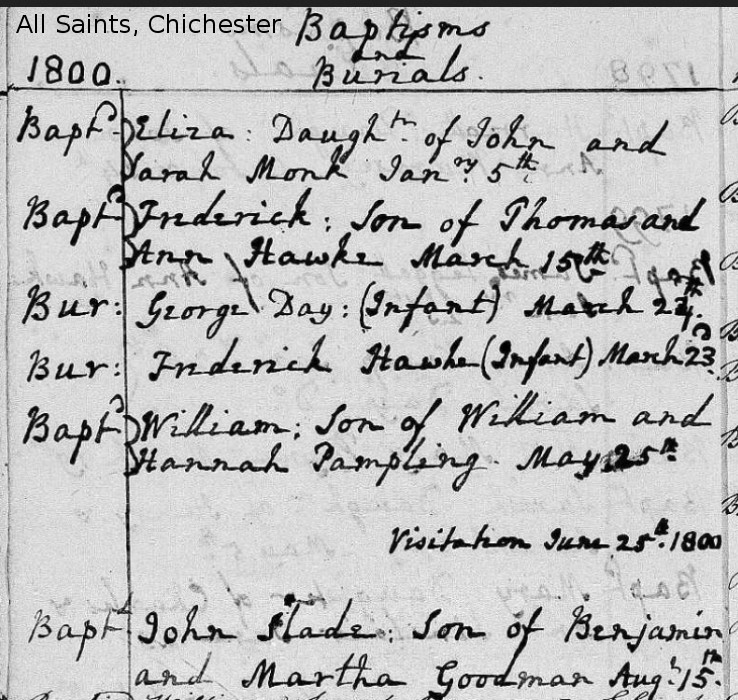 All Saints, Chichester
Baptisms
and
1800. Burials.
Baptd. Eliza: Daughtr. of John and
Sarah Monk Janry. 5th.
Baptd. Frederick: Son of Thomas and
Ann Hawke March 15th
Bur: George Day: (Infant) March 24th.
Bur: Frederick Hawke (Infant) March 23d.
Baptd. William: Son of William and
Hannah Pampling. May 25th.
Visitation June 25th. 1800
Baptd John Slade: Son of Benjamin
and Martha Goodman Augt. 15th.